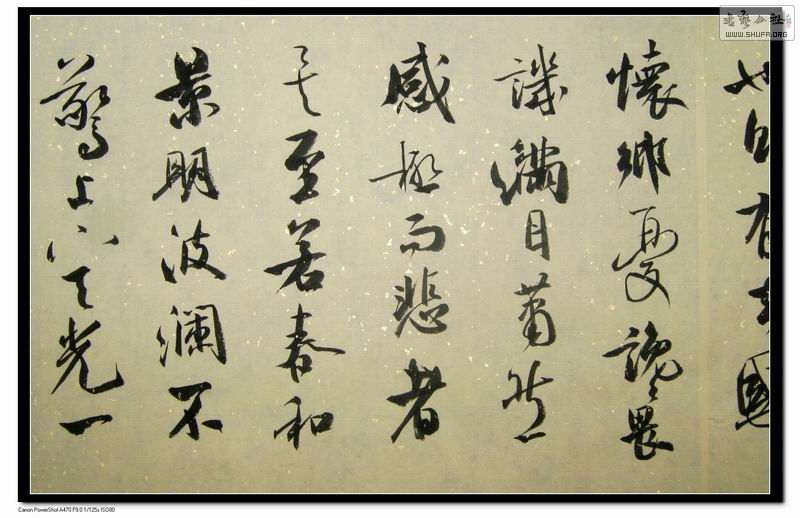 也則有去國
懷鄉憂讒畏
譏滿目蕭然
感極而悲者
矣至若春和
景明波瀾不
驚上下天光一
書藝公社
WWW.SHUFA.ORG
Canon PowerShot A470 F9.0 1/125s ISO80